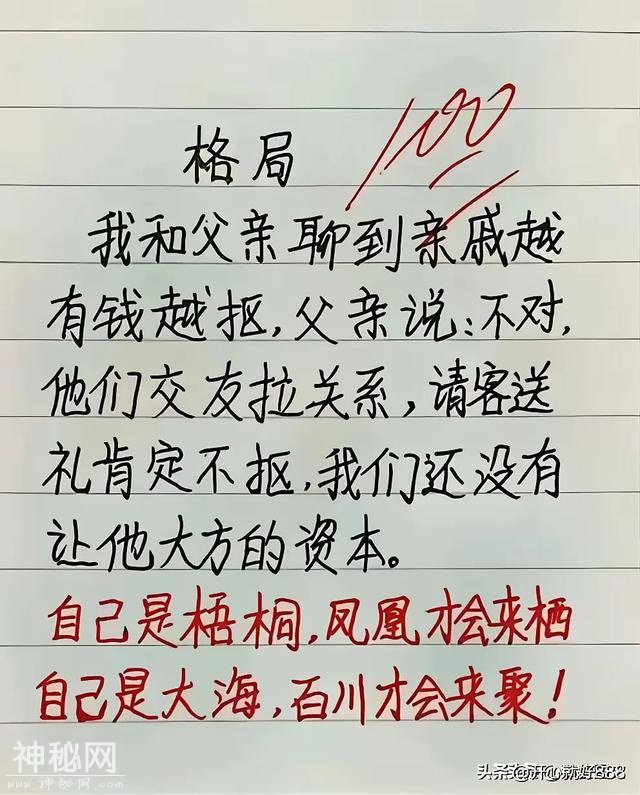 100
格局
我和父亲聊到亲戚越
有钱越抠,父亲说:不对,
他们交友拉关系,请客送
礼肯定不抠,我们还没有
让他大方的资本。
自己是梧桐,凤凰才会来栖
自己是大海,百川才会来聚!
神秘网
头条 @开心就好888